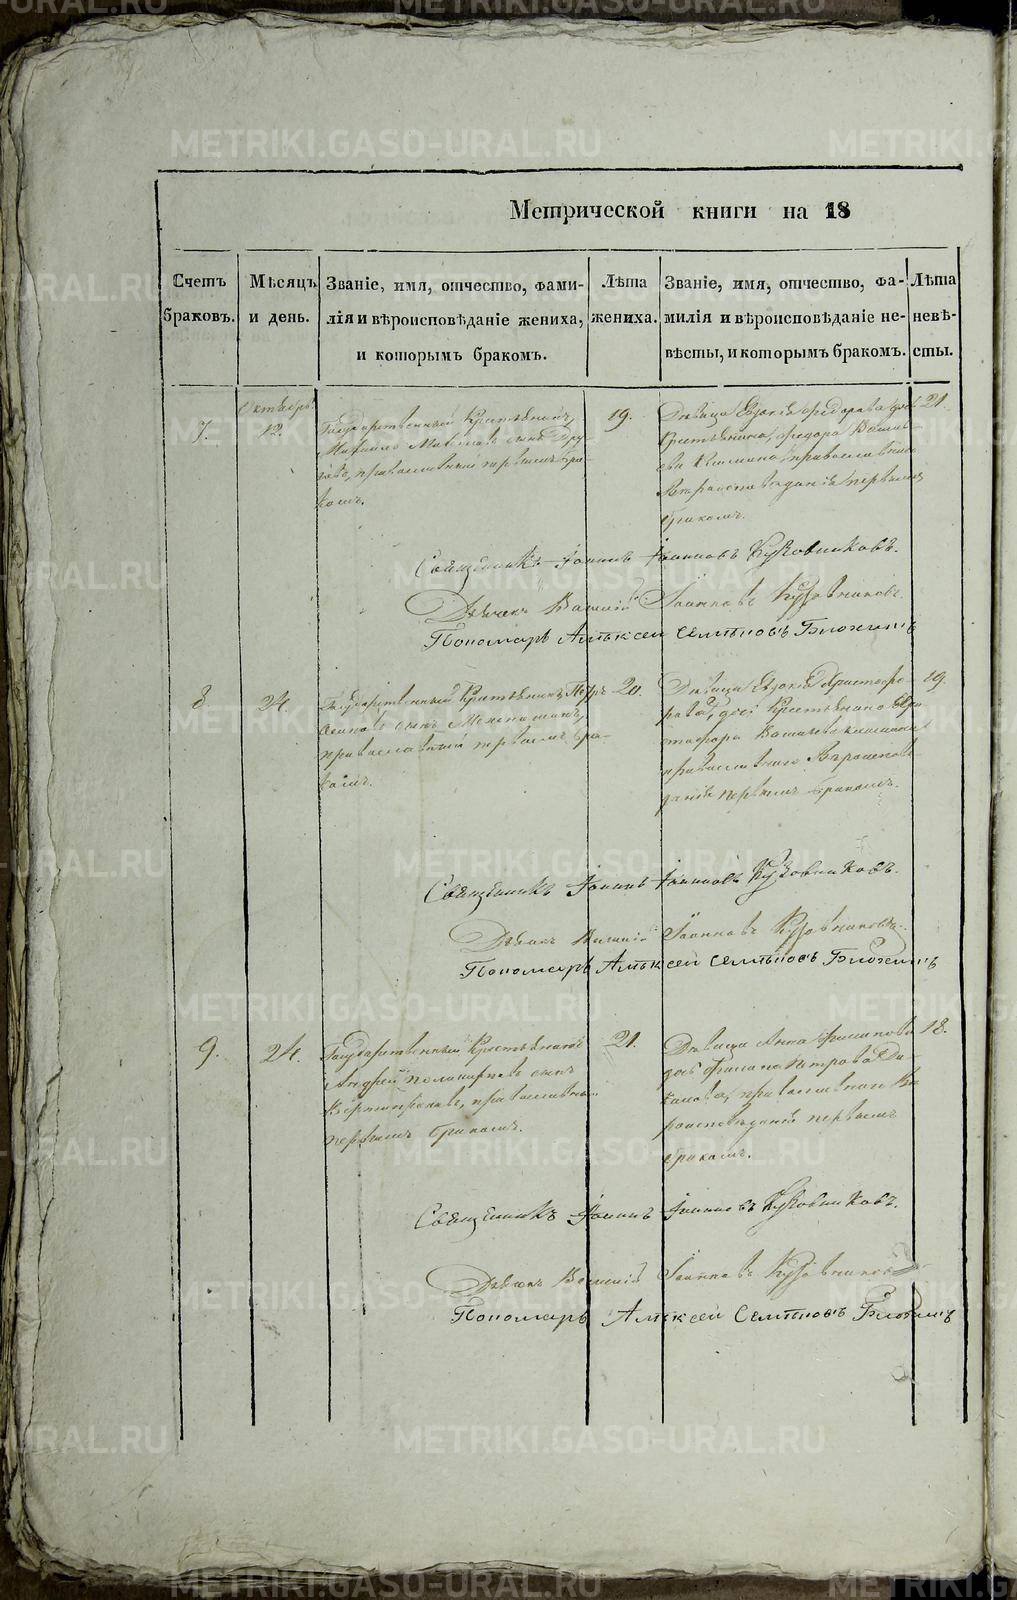 Метрической книги на 18
Счетъ браковъ.
Мѣсяцъ и день.
Званіе, имя, отчество, фами-
лія и вѣроисповѣданіе жениха,
и которымъ бракомъ.
Лѣта
жениха.
Званіе, имя, отчество, фа-
милія и вѣроисповѣданіе не-
вѣсты, и которымъ бракомъ.
Лѣта
невѣ-
сты.
Октябрь
7.
12.
Государственный Крестьянинъ
сынъ
православный первымъ бра-
комъ.
19.
Дѣвица Евдокія Федорова доч
Крестьянина Федора Василь-
ева православнаго
Вѣроисповѣданія первымъ
бракомъ.
21.
Священникъ Іоаннъ Іоанновъ Кузовниковъ.
Дьячекъ Василій Іоанновъ Кузовниковъ.
Пономарь Алѣксей Семѣновъ
8
24.
Государственный Крестьянинъ Петръ
сынъ
православный первымъ бра-
комъ.
20.
Дѣвица Евдокія Христофо-
рова, доч Крестьянина Хри-
стофора
православнаго Вѣроисповѣ-
данія первымъ бракомъ.
19.
Священникъ Іоаннъ Іоанновъ Кузовниковъ.
Дьячекъ Василій Іоанновъ Кузовниковъ.
Пономарь Алѣксей Семѣновъ
9.
24.
Государственный Крестьянинъ
Андрей сынъ
православный
первымъ бракомъ.
21.
Дѣвица Анна Филипова
доч Филипа Петрова
православнаго Вѣ-
роисповѣданія первымъ
бракомъ.
18.
Священникъ Іоаннъ Іоанновъ Кузовниковъ.
Дьячекъ Василій Іоанновъ Кузовниковъ
Пономарь Алѣксей Семѣновъ
METRIKI.GASO-URAL.RU